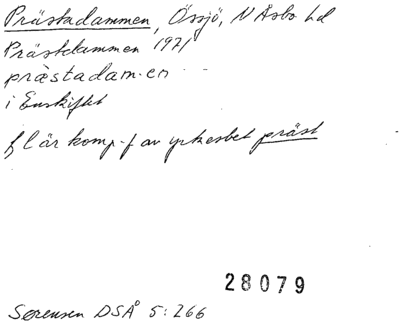 Prästadammen, Össjö, N Åsbo hd
Prästdammen 1971
præstadam·en
i Enskiftet
fl är komp-f av yrkesbet präst
28079
Sørensen DSÅ 5:266